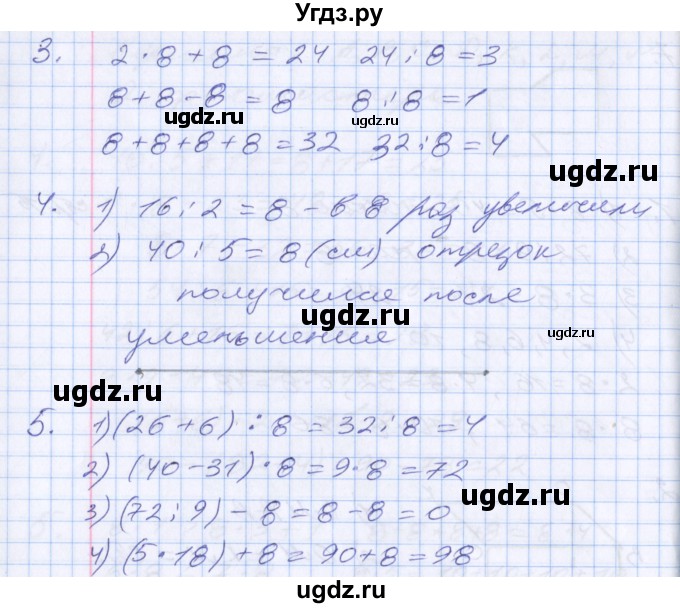 Угдз.ру
3. 2·8+8=24 24:8=3
8+8-8=8 8:8=1
8+8+8+8=32 32:8=4
4. 1) 16:2=8 - в 8 раз увеличили
2) 40:5=8 (см) отрезок
получился после
уменьшения
5. 1) (26+6):8=32:8=4
2) (40-31)·8=9·8=72
3) (72:9)-8=8-8=0
4) (5·18)+8=90+8=98
ugdz.ru
ugdz.ru
ugdz.ru
ugdz.ru
ugdz.ru
ugdz.ru
ugdz.ru
ugdz.ru
ugdz.ru
ugdz.ru